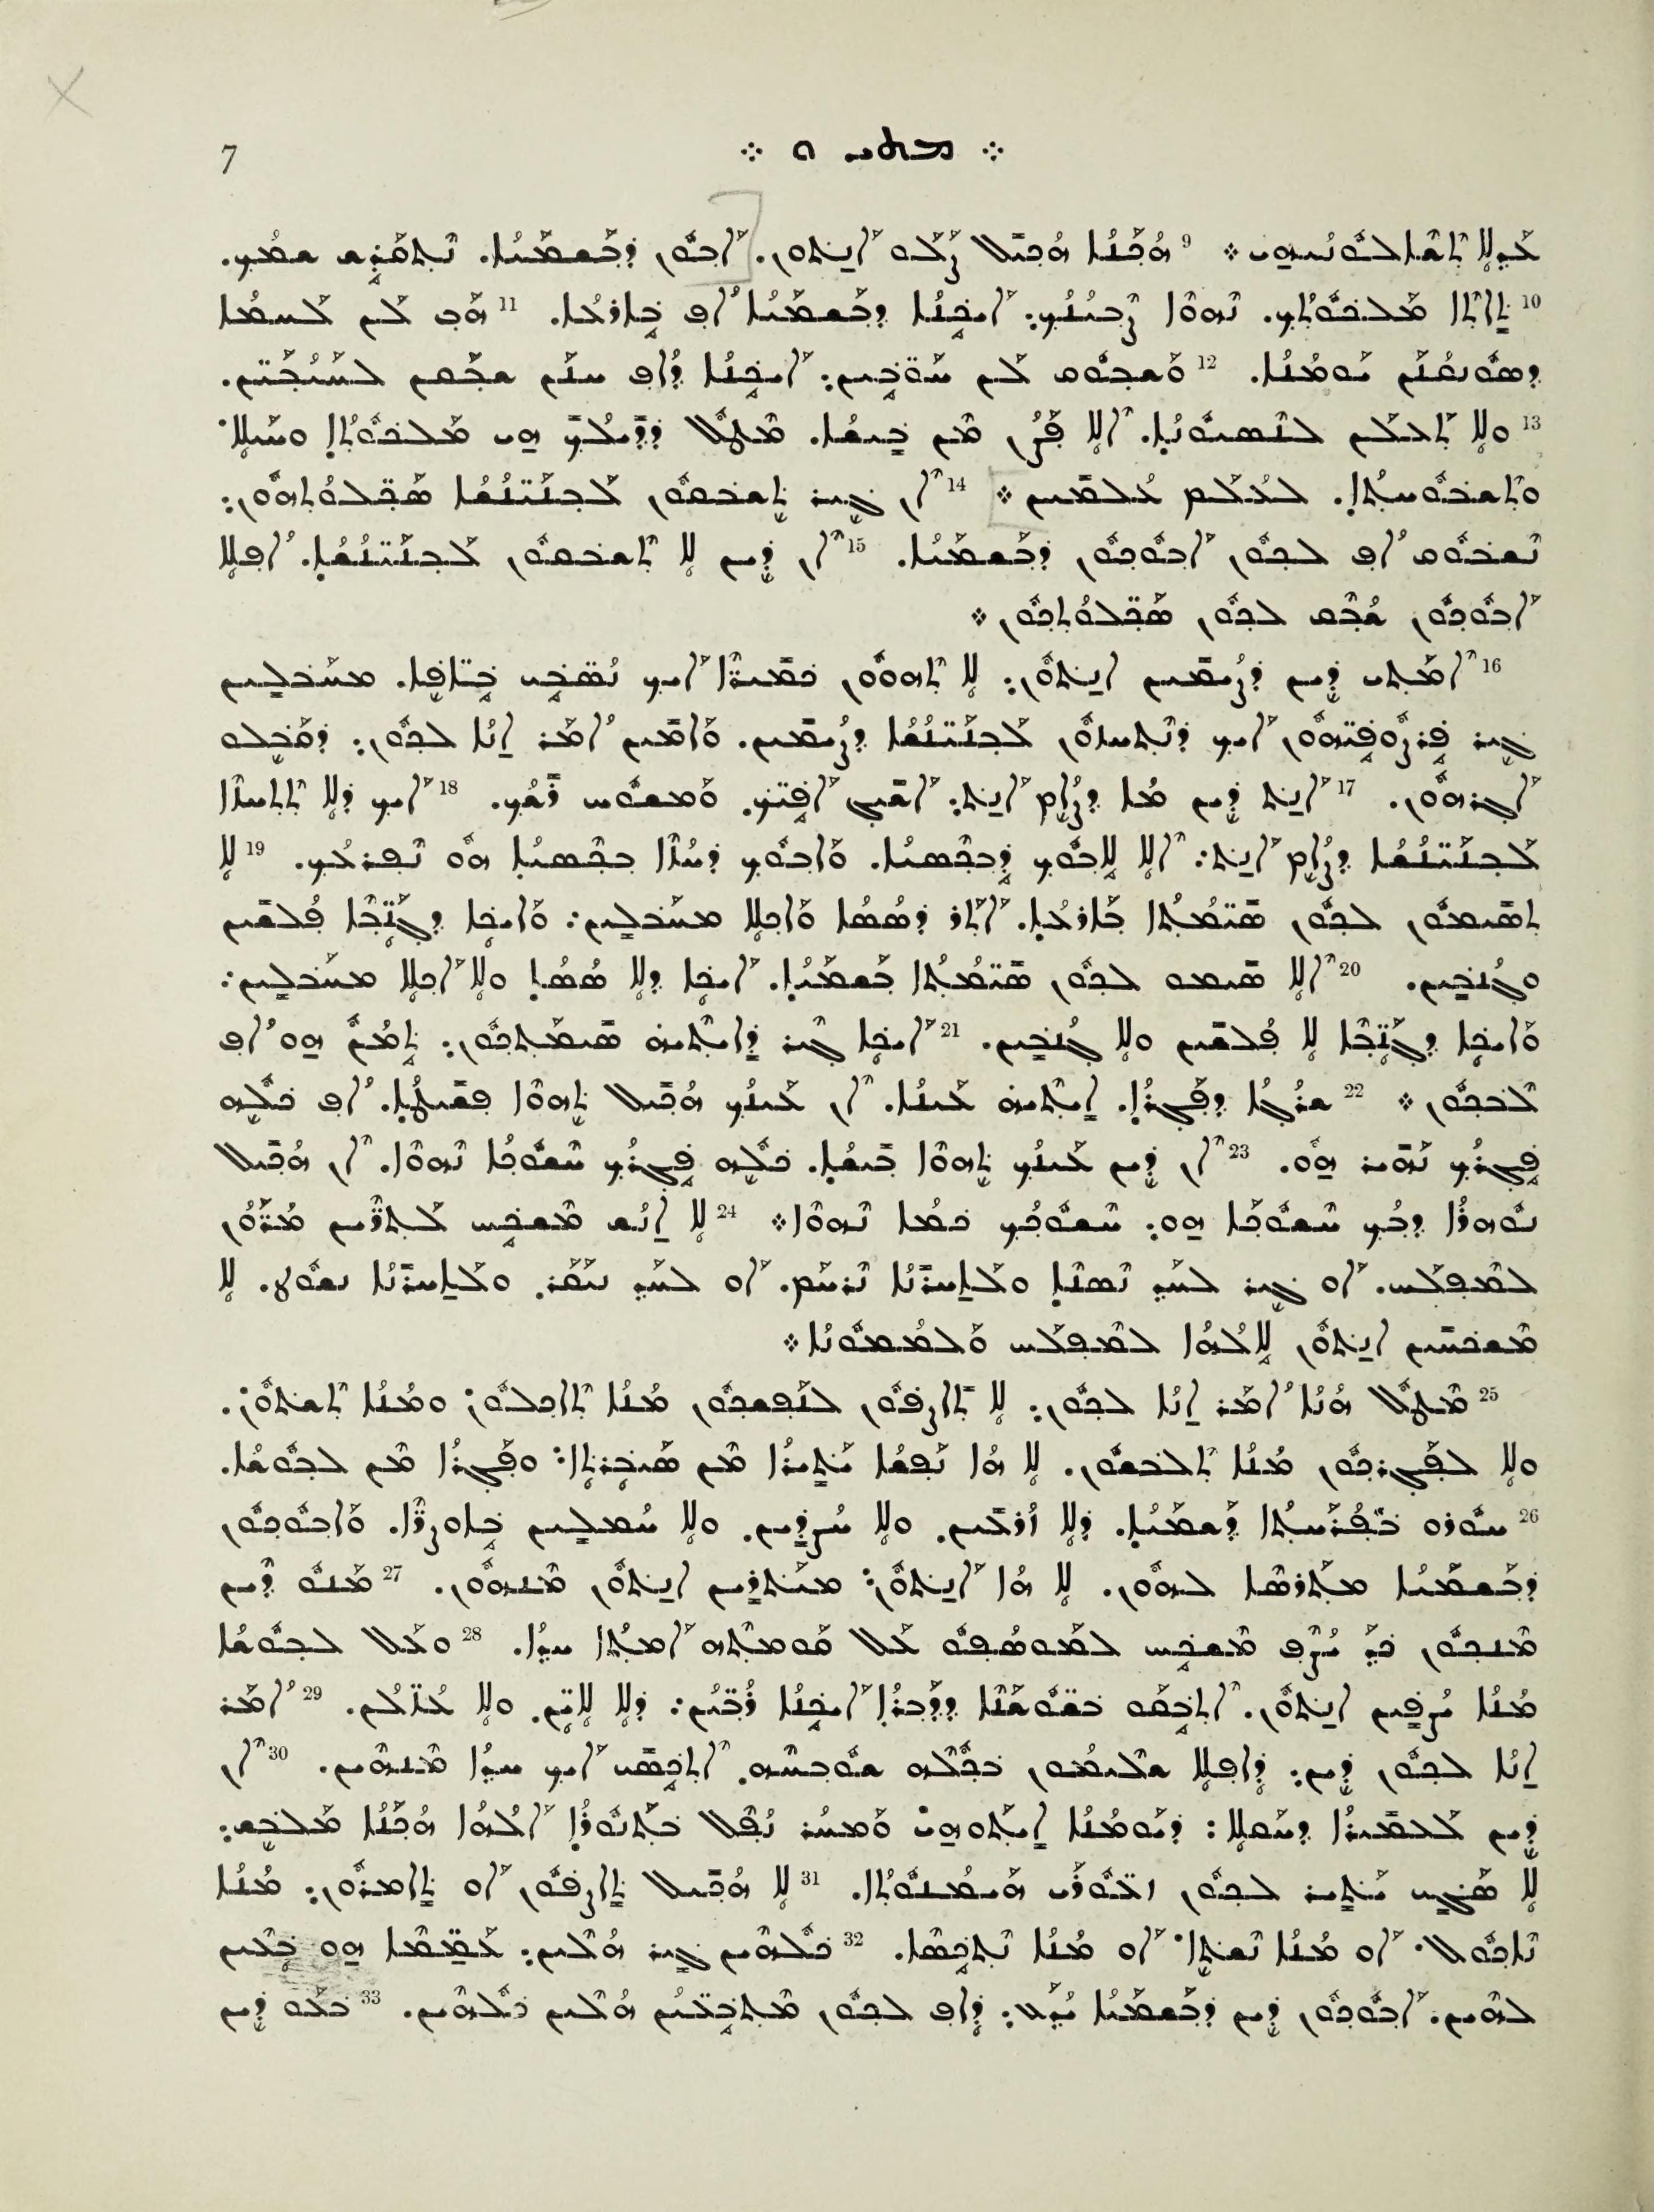 7 ܀ ܡܬܝ ܘ ܀
ܥܕܠܐ ܬܫܐܠܘܢܝܗܝ ܀ 9 ܗܟܢܐ ܗܟܝܠ ܨܠܘ ܐܢܬܘܢ. ܐܒܘܢ ܕܒܫܡܝܐ. ܢܬܩܕܫ ܫܡܟ.
10 ܬܐܬܐ ܡܠܟܘܬܟ. ܢܗܘܐ ܨܒܝܢܟ: ܐܝܟܢܐ ܕܒܫܡܝܐ ܐܦ ܒܐܪܥܐ. 11 ܗܒ ܠܢ ܠܚܡܐ
ܕܣܘܢܩܢܢ ܝܘܡܢܐ. 12 ܘܫܒܘܩ ܠܢ ܚܘܒܝܢ: ܐܝܟܢܐ ܕܐܦ ܚܢܢ ܫܒܩܢ ܠܚܝܒܝܢ.
13 ܘܠܐ ܬܥܠܢ ܠܢܣܝܘܢܐ. ܐܠܐ ܦܨܢ ܡܢ ܒܝܫܐ. ܡܛܠ ܕܕܝܠܟ ܗܝ ܡܠܟܘܬܐ ܘܚܝܠܐ
ܘܬܫܒܘܚܬܐ. ܠܥܠܡ ܥܠܡܝܢ ܀ 14 ܐܢ ܓܝܪ ܬܫܒܩܘܢ ܠܒܢܝܢܫܐ ܣܟܠܘܬܗܘܢ:
ܢܫܒܘܩ ܐܦ ܠܟܘܢ ܐܒܘܟܘܢ ܕܒܫܡܝܐ. 15 ܐܢ ܕܝܢ ܠܐ ܬܫܒܩܘܢ ܠܒܢܝܢܫܐ. ܐܦܠܐ
ܐܒܘܟܘܢ ܫܒܩ ܠܟܘܢ ܣܟܠܘܬܟܘܢ ܀
16 ܐܡܬܝ ܕܝܢ ܕܨܝܡܝܢ ܐܢܬܘܢ: ܠܐ ܬܗܘܘܢ ܟܡܝܪܐ ܐܝܟ ܢܣܒܝ ܒܐܦܐ. ܡܚܒܠܝܢ
ܓܝܪ ܦܪܨܘܦܝܗܘܢ ܐܝܟ ܕܢܬܚܙܘܢ ܠܒܢܝܢܫܐ ܕܨܝܡܝܢ. ܘܐܡܝܢ ܐܡܪ ܐܢܐ ܠܟܘܢ: ܕܩܒܠܘ
ܐܓܪܗܘܢ. 17 ܐܢܬ ܕܝܢ ܡܐ ܕܨܐܡ ܐܢܬ: ܐܫܝܓ ܐܦܝܟ. ܘܡܫܘܚ ܪܫܟ. 18 ܐܝܟ ܕܠܐ ܬܬܚܙܐ
ܠܒܢܝܢܫܐ ܕܨܐܡ ܐܢܬ: ܐܠܐ ܠܐܒܘܟ ܕܒܟܣܝܐ. ܘܐܒܘܟ ܕܚܙܐ ܒܟܣܝܐ ܗܘ ܢܦܪܥܟ. 19 ܠܐ
ܬܣܝܡܘܢ ܠܟܘܢ ܣܝܡܬܐ ܒܐܪܥܐ. ܐܬܪ ܕܣܣܐ ܘܐܟܠܐ ܡܚܒܠܝܢ: ܘܐܝܟܐ ܕܓܢܒܐ ܦܠܫܝܢ
ܘܓܢܒܝܢ. 20 ܐܠܐ ܣܝܡܘ ܠܟܘܢ ܣܝܡܬܐ ܒܫܡܝܐ. ܐܝܟܐ ܕܠܐ ܣܣܐ ܘܠܐ ܐܟܠܐ ܡܚܒܠܝܢ:
ܘܐܝܟܐ ܕܓܢܒܐ ܠܐ ܦܠܫܝܢ ܘܠܐ ܓܢܒܝܢ. 21 ܐܝܟܐ ܓܝܪ ܕܐܝܬܝܗ ܣܝܡܬܟܘܢ: ܬܡܢ ܗܘ ܐܦ
ܠܒܟܘܢ ܀ 22 ܫܪܓܐ ܕܦܓܪܐ. ܐܝܬܝܗ ܥܝܢܐ. ܐܢ ܥܝܢܟ ܗܟܝܠ ܬܗܘܐ ܦܫܝܛܐ. ܐܦ ܟܠܗ
ܦܓܪܟ ܢܗܝܪ ܗܘ. 23 ܐܢ ܕܝܢ ܥܝܢܟ ܬܗܘܐ ܒܝܫܐ. ܟܠܗ ܦܓܪܟ ܚܫܘܟܐ ܢܗܘܐ. ܐܢ ܗܟܝܠ
ܢܘܗܪܐ ܕܒܟ ܚܫܘܟܐ ܗܘ: ܚܫܘܟܟ ܟܡܐ ܢܗܘܐ ܀ 24 ܠܐ ܐܢܫ ܡܫܟܚ ܠܬܪܝܢ ܡܪܘܢ
ܠܡܦܠܚ. ܐܘ ܓܝܪ ܠܚܕ ܢܣܢܐ ܘܠܐܚܪܢܐ ܢܪܚܡ. ܐܘ ܠܚܕ ܢܝܩܪ. ܘܠܐܚܪܢܐ ܢܫܘܛ. ܠܐ
ܡܫܟܚܝܢ ܐܢܬܘܢ ܠܐܠܗܐ ܠܡܦܠܚ ܘܠܡܡܘܢܐ ܀
25 ܡܛܠ ܗܢܐ ܐܡܪ ܐܢܐ ܠܟܘܢ: ܠܐ ܬܐܨܦܘܢ ܠܢܦܫܟܘܢ ܡܢܐ ܬܐܟܠܘܢ: ܘܡܢܐ ܬܫܬܘܢ.
ܘܠܐ ܠܦܓܪܟܘܢ ܡܢܐ ܬܠܒܫܘܢ. ܠܐ ܗܐ ܢܦܫܐ ܝܬܝܪܐ ܡܢ ܣܝܒܪܬܐ: ܘܦܓܪܐ ܡܢ ܠܒܘܫܐ.
26 ܚܘܪܘ ܒܦܪܚܬܐ ܕܫܡܝܐ. ܕܠܐ ܙܪܥܝܢ. ܘܠܐ ܚܨܕܝܢ. ܘܠܐ ܚܡܠܝܢ ܒܐܘܨܪܐ. ܘܐܒܘܟܘܢ
ܕܒܫܡܝܐ ܡܬܪܣܐ ܠܗܘܢ. ܠܐ ܗܐ ܐܢܬܘܢ: ܡܝܬܪܝܢ ܐܢܬܘܢ ܡܢܗܘܢ. 27 ܡܢܘ ܕܝܢ
ܡܢܟܘܢ ܟܕ ܝܨܦ ܡܫܟܚ ܠܡܘܣܦܘ ܥܠ ܩܘܡܬܗ ܐܡܬܐ ܚܕܐ. 28 ܘܥܠ ܠܒܘܫܐ
ܡܢܐ ܝܨܦܝܢ ܐܢܬܘܢ. ܐܬܒܩܘ ܒܫܘܫܢܐ ܕܕܒܪܐ ܐܝܟܢܐ ܪܒܝܢ: ܕܠܐ ܠܐܝܢ. ܘܠܐ ܥܙܠܢ. 29 ܐܡܪ
ܐܢܐ ܠܟܘܢ ܕܝܢ: ܕܐܦܠܐ ܫܠܝܡܘܢ ܒܟܠܗ ܫܘܒܚܗ. ܐܬܟܣܝ ܐܝܟ ܚܕܐ ܡܢܗܝܢ. 30 ܐܢ
ܕܝܢ ܠܥܡܝܪܐ ܕܚܩܠܐ: ܕܝܘܡܢܐ ܐܝܬܘܗܝ ܘܡܚܪ ܢܦܠ ܒܬܢܘܪܐ ܐܠܗܐ ܗܟܢܐ ܡܠܒܫ:
ܠܐ ܣܓܝ ܝܬܝܪ ܠܟܘܢ ܙܥܘܪܝ ܗܝܡܢܘܬܐ. 31 ܠܐ ܗܟܝܠ ܬܐܨܦܘܢ ܐܘ ܬܐܡܪܘܢ: ܡܢܐ
ܢܐܟܘܠ. ܐܘ ܡܢܐ ܢܫܬܐ. ܐܘ ܡܢܐ ܢܬܟܣܐ. 32 ܟܠܗܝܢ ܓܝܪ ܗܠܝܢ: ܥܡܡܐ ܗܘ ܒܥܝܢ
ܠܗܝܢ. ܐܒܘܟܘܢ ܕܝܢ ܕܒܫܡܝܐ ܝܕܥ: ܕܐܦ ܠܟܘܢ ܡܬܒܥܝܢ ܗܠܝܢ ܟܠܗܝܢ. 33 ܒܥܘ ܕܝܢ